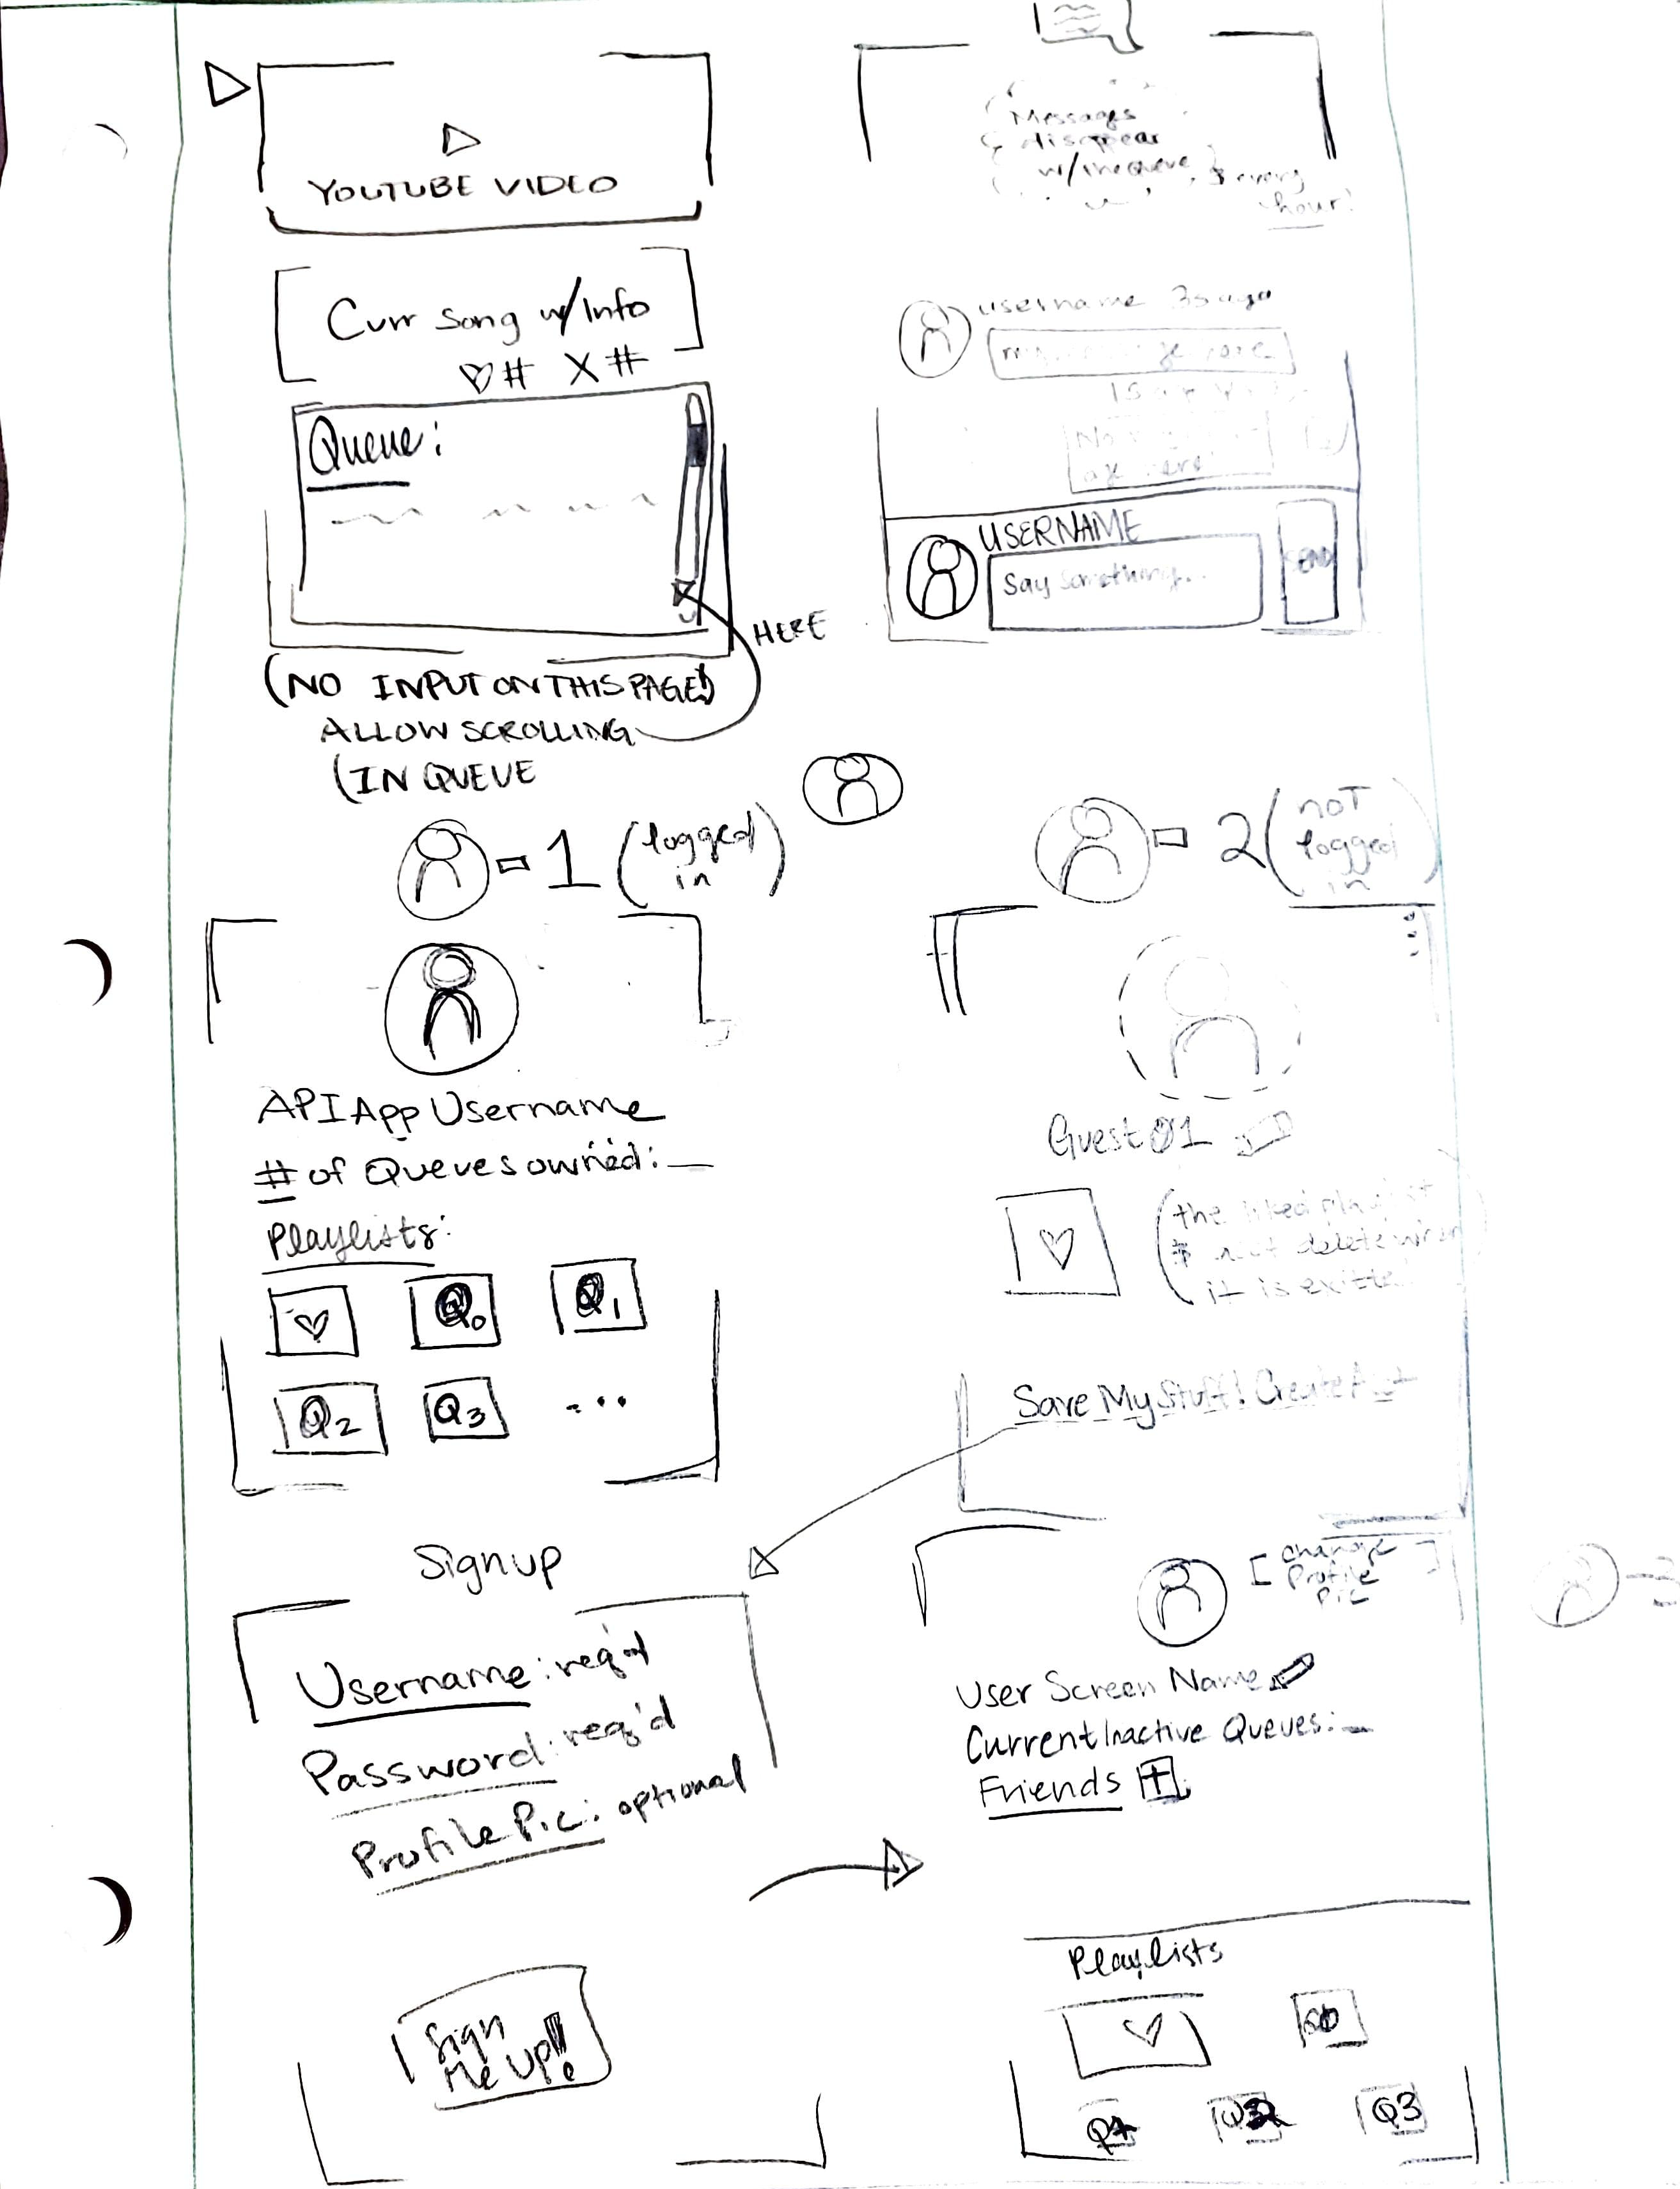 YOUTUBE VIDEO
Curr song w/Info
♡# X#
Queue:
HERE
(NO INPUT ON THIS PAGE!)
ALLOW SCROLLING
(IN QUEUE
Messages
disappear
w/in queue
every
hour!
username 3s ago
USERNAME
Say something...
SEND
= 1 (logged
in)
= 2 (not
logged
in)
API App Username
# of Queues owned:
Playlists:
♡ Q0 Q1
Q2 Q3 ...
Guest 01
♡
(the liked
delete when
it is
Save My Stuff! Create Acct
Signup
Username: req'd
Password: req'd
Profile Pic: optional
Sign
Me Up!!
[change
Profile
Pic]
User Screen Name
Current Inactive Queues:
Friends +
Playlists
♡
Q3